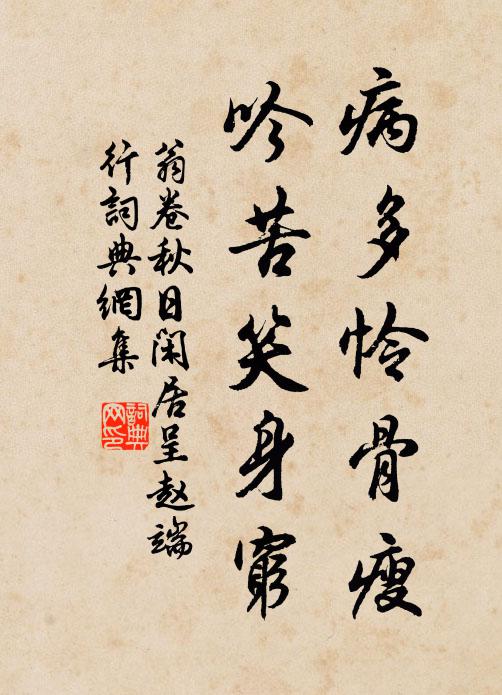 病多怜骨瘦
吟苦笑身窮
翁卷秋日閑居呈赵端
行詞典網集
詞典
网印